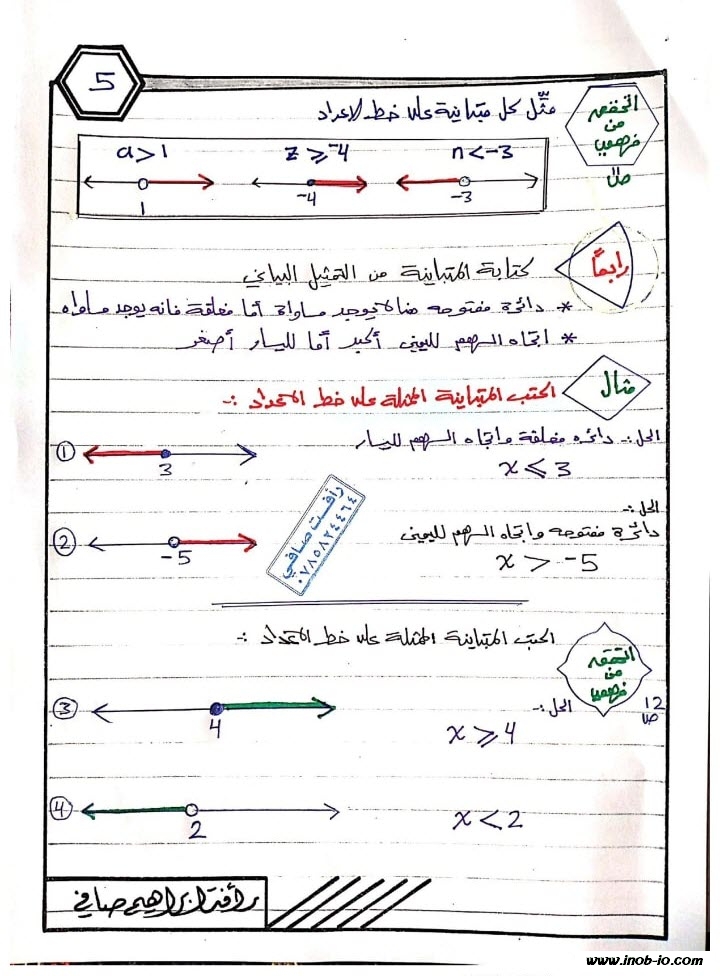 5
أتحقق
من
فهمي
ص11
مثّل كل متباينة على خط الاعداد
a > 1
z ⩾ -4
n < -3
1
-4
-3
رابعاً
كتابة المتباينة من التمثيل البياني
* دائرة مفتوحه هنا لا يوجد مساواة أما مغلقة فانه يوجد مساواه
* اتجاه السهم لليمين أكبر أما لليسار أصغر
مثال
اكتب المتباينة الممثلة على خط الاعداد :-
الحل :- دائره مغلقة واتجاه السهم لليسار
① 3
x ⩽ 3
الحل :-
دائرة مفتوحه واتجاه السهم لليمين
② -5
x > -5
رأفت صافي
٠٧٨٥٨٢٤٤٦٤
اتحقق
من
فهمي
12
ص
اكتب المتباينة الممثلة على خط الاعداد :-
الحل :-
③ 4
x ⩾ 4
④ 2
x < 2
رأفت ابراهيم صافي
www.inob-io.com